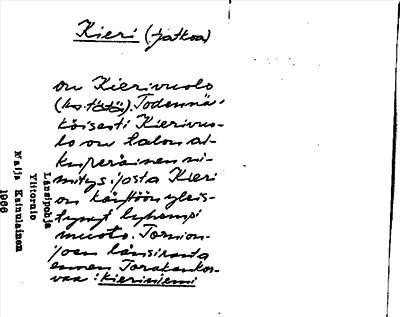 Kieri (jatkoa)
on Kierivuolo
(ks. tätä). Todennä-
köisesti Kierivuo-
lo on talon al-
kuperäinen ni-
mitys, josta Kieri
on käyttöön yleis-
tynyt lyhempi
muoto. Tornion-
joen länsiranta
ennen Torakankor-
vaa: Kieriniemi
Länsipohja
Ylitornio
Maija Kainulainen
1966